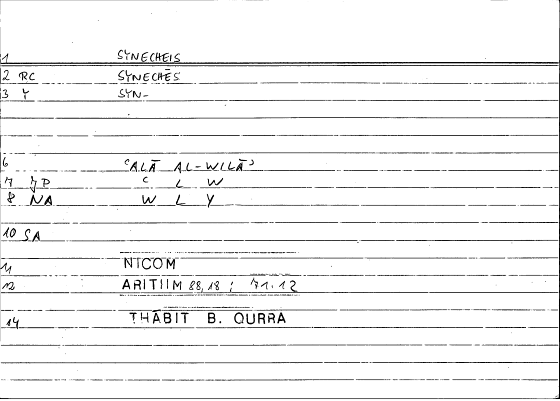 1 SYNECHEIS
2 RC SYNECHĒS
3 Y SYN-
6 ʿALĀ AL-WILĀʾ
7 JP ʿ L W
8 NA W L Y
10 SA
11 NICOM
12 ARITIIM 88,18 ; 71.12
14 THĀBIT B. QURRA